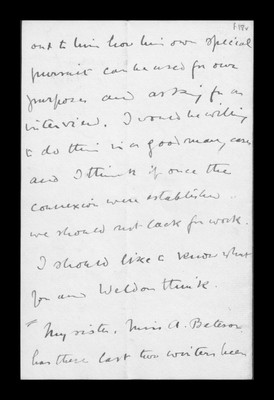 out to him how his own special
pursuit can be used for our
purposes and asking for an
interview. I would be willing
to do this in a good many cases
and I think if once the
connexion were established
we should not lack for work.
I should like to know what
you and Weldon think.
My sister, Miss A. Bateson
has these last two winters been